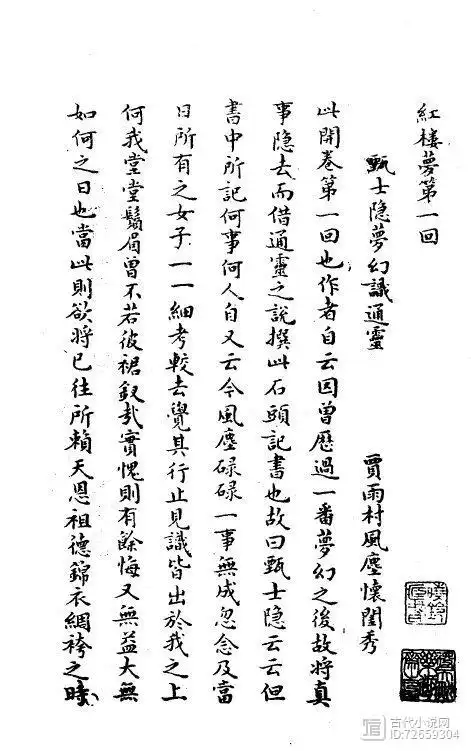 紅楼夢第一回
甄士隐夢幻識通靈　賈雨村風塵懷閨秀
此開卷第一回也作者自云因曾歷過一番夢幻之後故將真
事隐去而借通靈之說撰此石頭記書也故曰甄士隐云云但
書中所記何事何人自又云今風塵碌碌一事無成忽念及當
日所有之女子一一細考較去覺其行止見識皆出於我之上
何我堂堂鬚眉曾不若彼裙釵哉實愧則有餘悔又無益大無
如何之日也當此則欲將已往所賴天恩祖德錦衣綢袴之時
古代小说网
ID:72659304